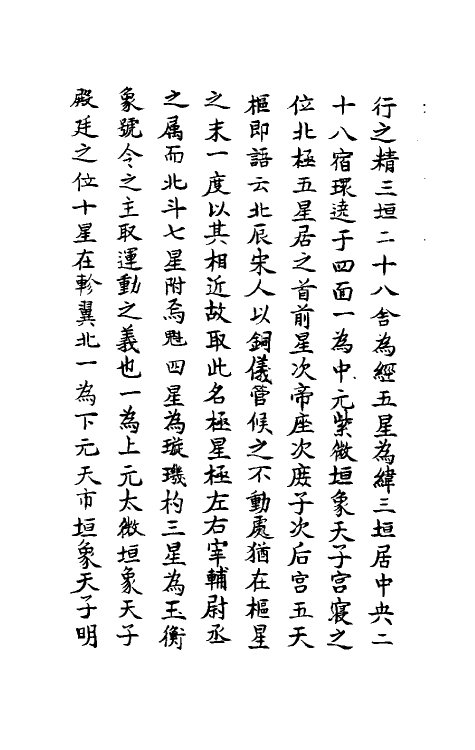 行之精三垣二十八舍為經五星為緯三垣居中央二
十八宿環遶于四面一為中元紫微垣象天子宫寢之
位北極五星居之首前星次帝座次庻子次后宫五天
樞即語云北辰宋人以銅儀管候之不動處猶在樞星
之末一度以其相近故取此名極星極左右宰輔尉丞
之属而北斗七星附焉魁四星為璇璣杓三星為玉衡
象號令之主取運動之義也一為上元太微垣象天子
殿廷之位十星在軫翼北一為下元天市垣象天子明